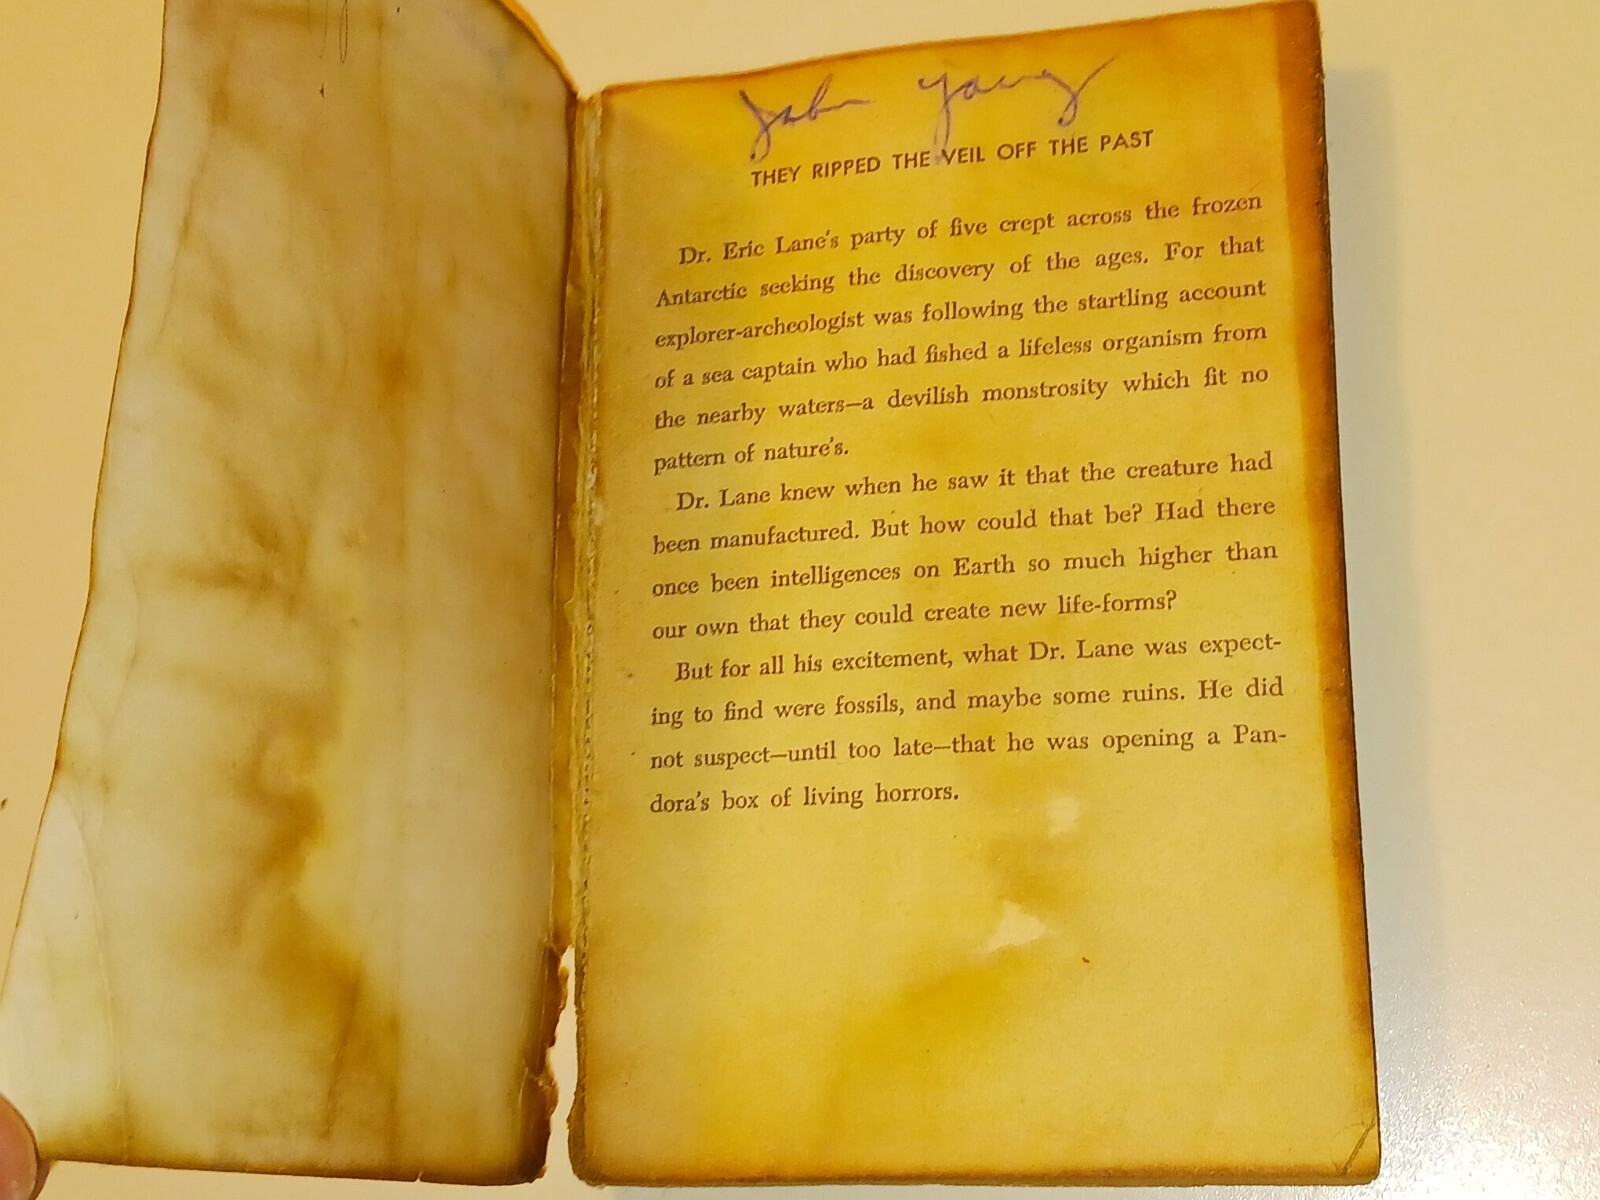 John Young
THEY RIPPED THE VEIL OFF THE PAST
Dr. Eric Lane's party of five crept across the frozen
Antarctic seeking the discovery of the ages. For that
explorer-archeologist was following the startling account
of a sea captain who had fished a lifeless organism from
the nearby waters—a devilish monstrosity which fit no
pattern of nature's.
Dr. Lane knew when he saw it that the creature had
been manufactured. But how could that be? Had there
once been intelligences on Earth so much higher than
our own that they could create new life-forms?
But for all his excitement, what Dr. Lane was expect-
ing to find were fossils, and maybe some ruins. He did
not suspect—until too late—that he was opening a Pan-
dora's box of living horrors.